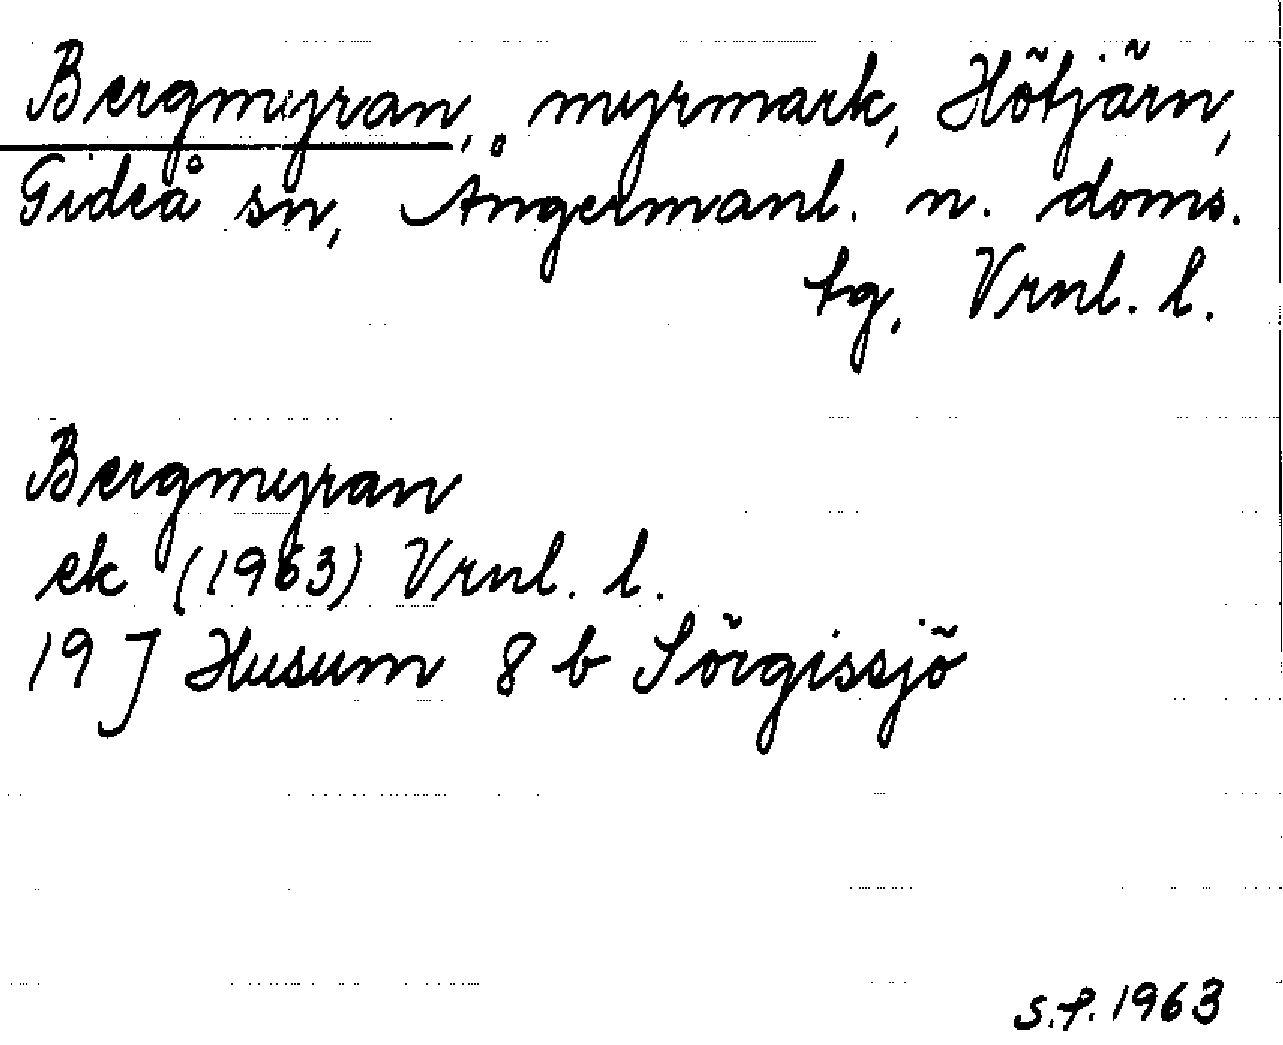 Bergmyran, myrmark, Hötjärn,
Gideå sn, Ångermanl. n. doms.
tg, Vrnl. l.
Bergmyran
ek (1963) Vrnl. l.
19 J Husum 8 b Sörgissjö
S.P. 1963